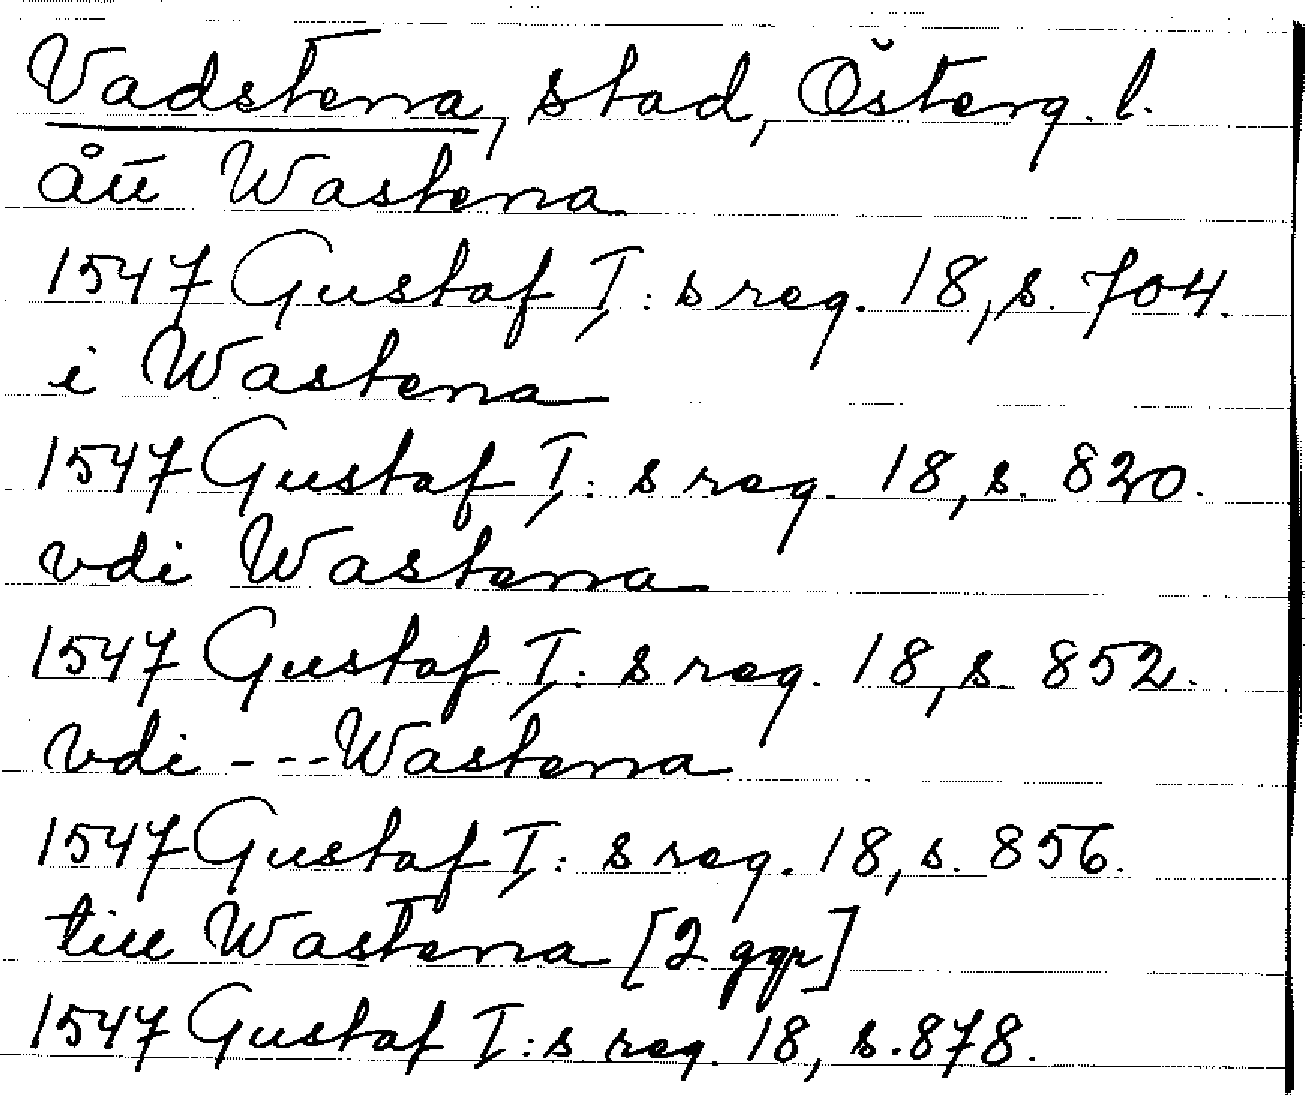 Vadstena, stad, Österg. l.
ått Wastena
1547 Gustaf I:s reg. 18, s. 704.
i Wastena
1547 Gustaf I:s reg. 18, s. 820.
vdi Wastena
1547 Gustaf I:s reg. 18, s 852.
vdi --- Wastena
1547 Gustaf I:s reg. 18, s. 856.
till Wastena [2 ggr]
1547 Gustaf I:s reg. 18, s. 878.